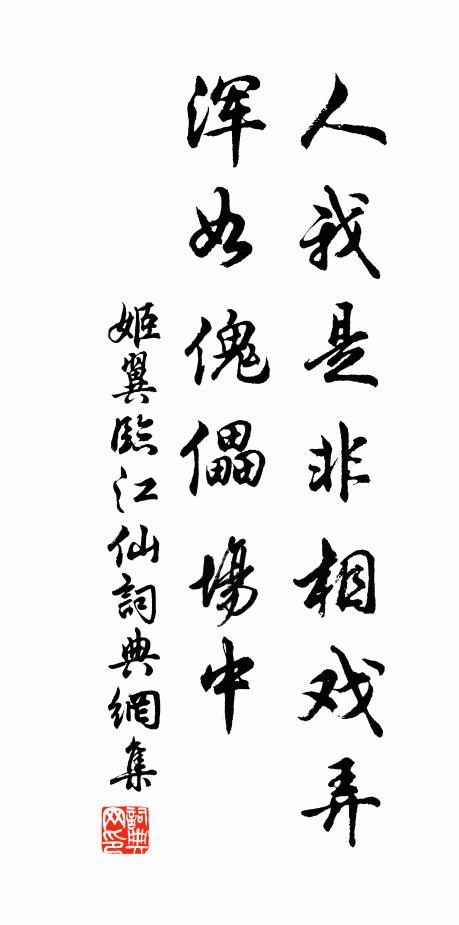 人我是非相戏弄
浑如傀儡場中
姬翼臨江仙詞典網集
詞典网印